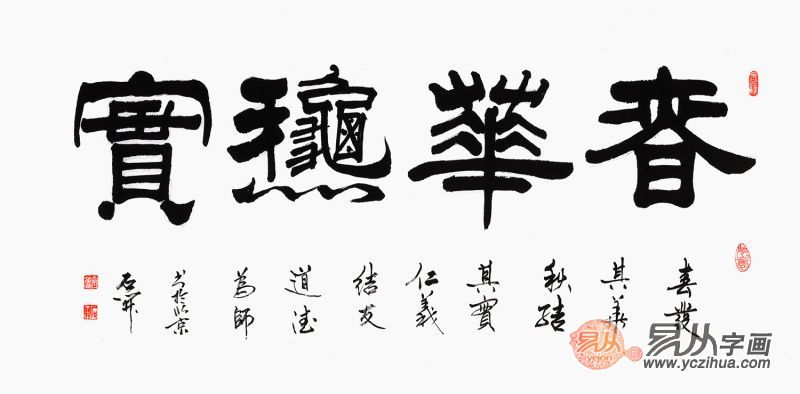 春華龝實
春發
其華
秋結
其實
仁義
結友
道德
為師
书於北京
易从字画
www.yczihua.com